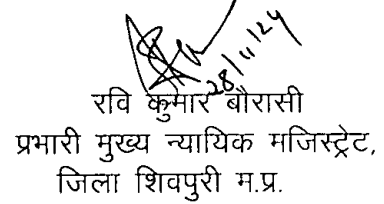 28/11/24
रवि कुमार बौरासी
प्रभारी मुख्य न्यायिक मजिस्ट्रेट,
जिला शिवपुरी म.प्र.